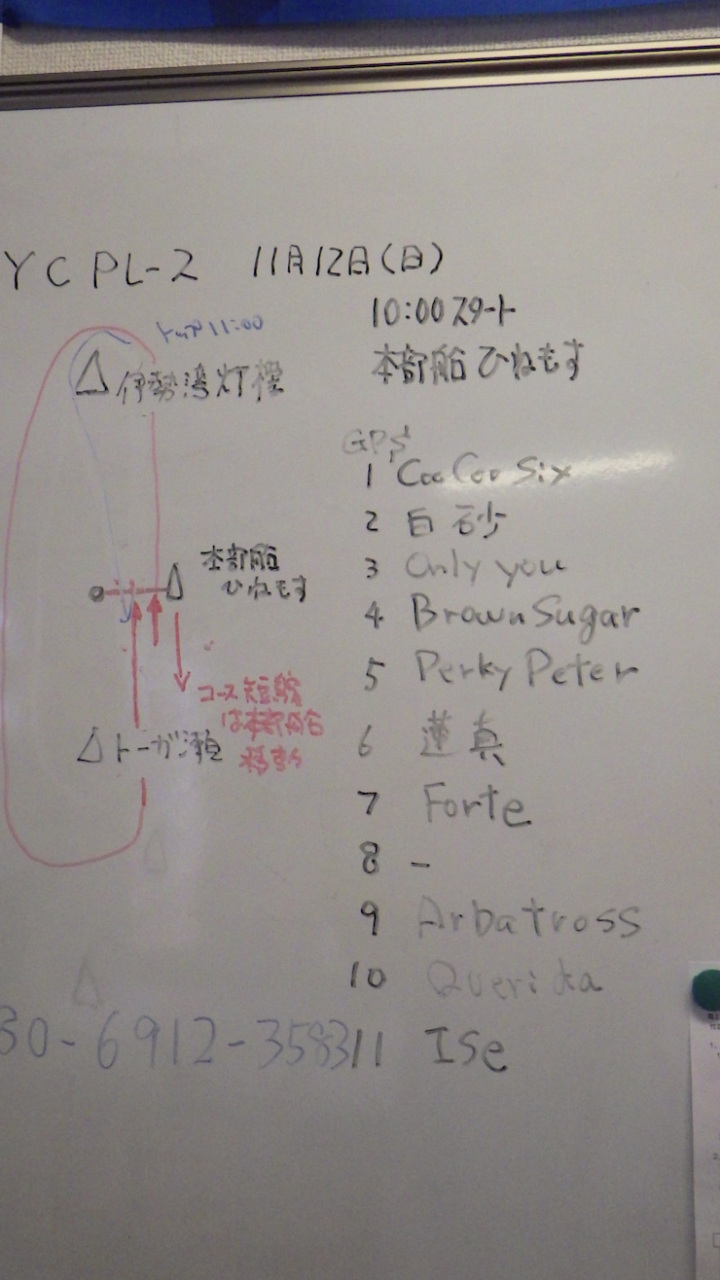 YC PL-2 11月12日(日)
10:00スタート
本部船 ひねもす
11:00
伊勢湾灯標
本部船
ひねもす
コース短縮
は本部船
トーガ瀬
GPS
1 CooCoo Six
2 白砂
3 Only you
4 Brown Sugar
5 Perky Peter
6 蓮真
7 Forte
8 -
9 Arbatross
10 Querida
11 Ise
30-6912-3583